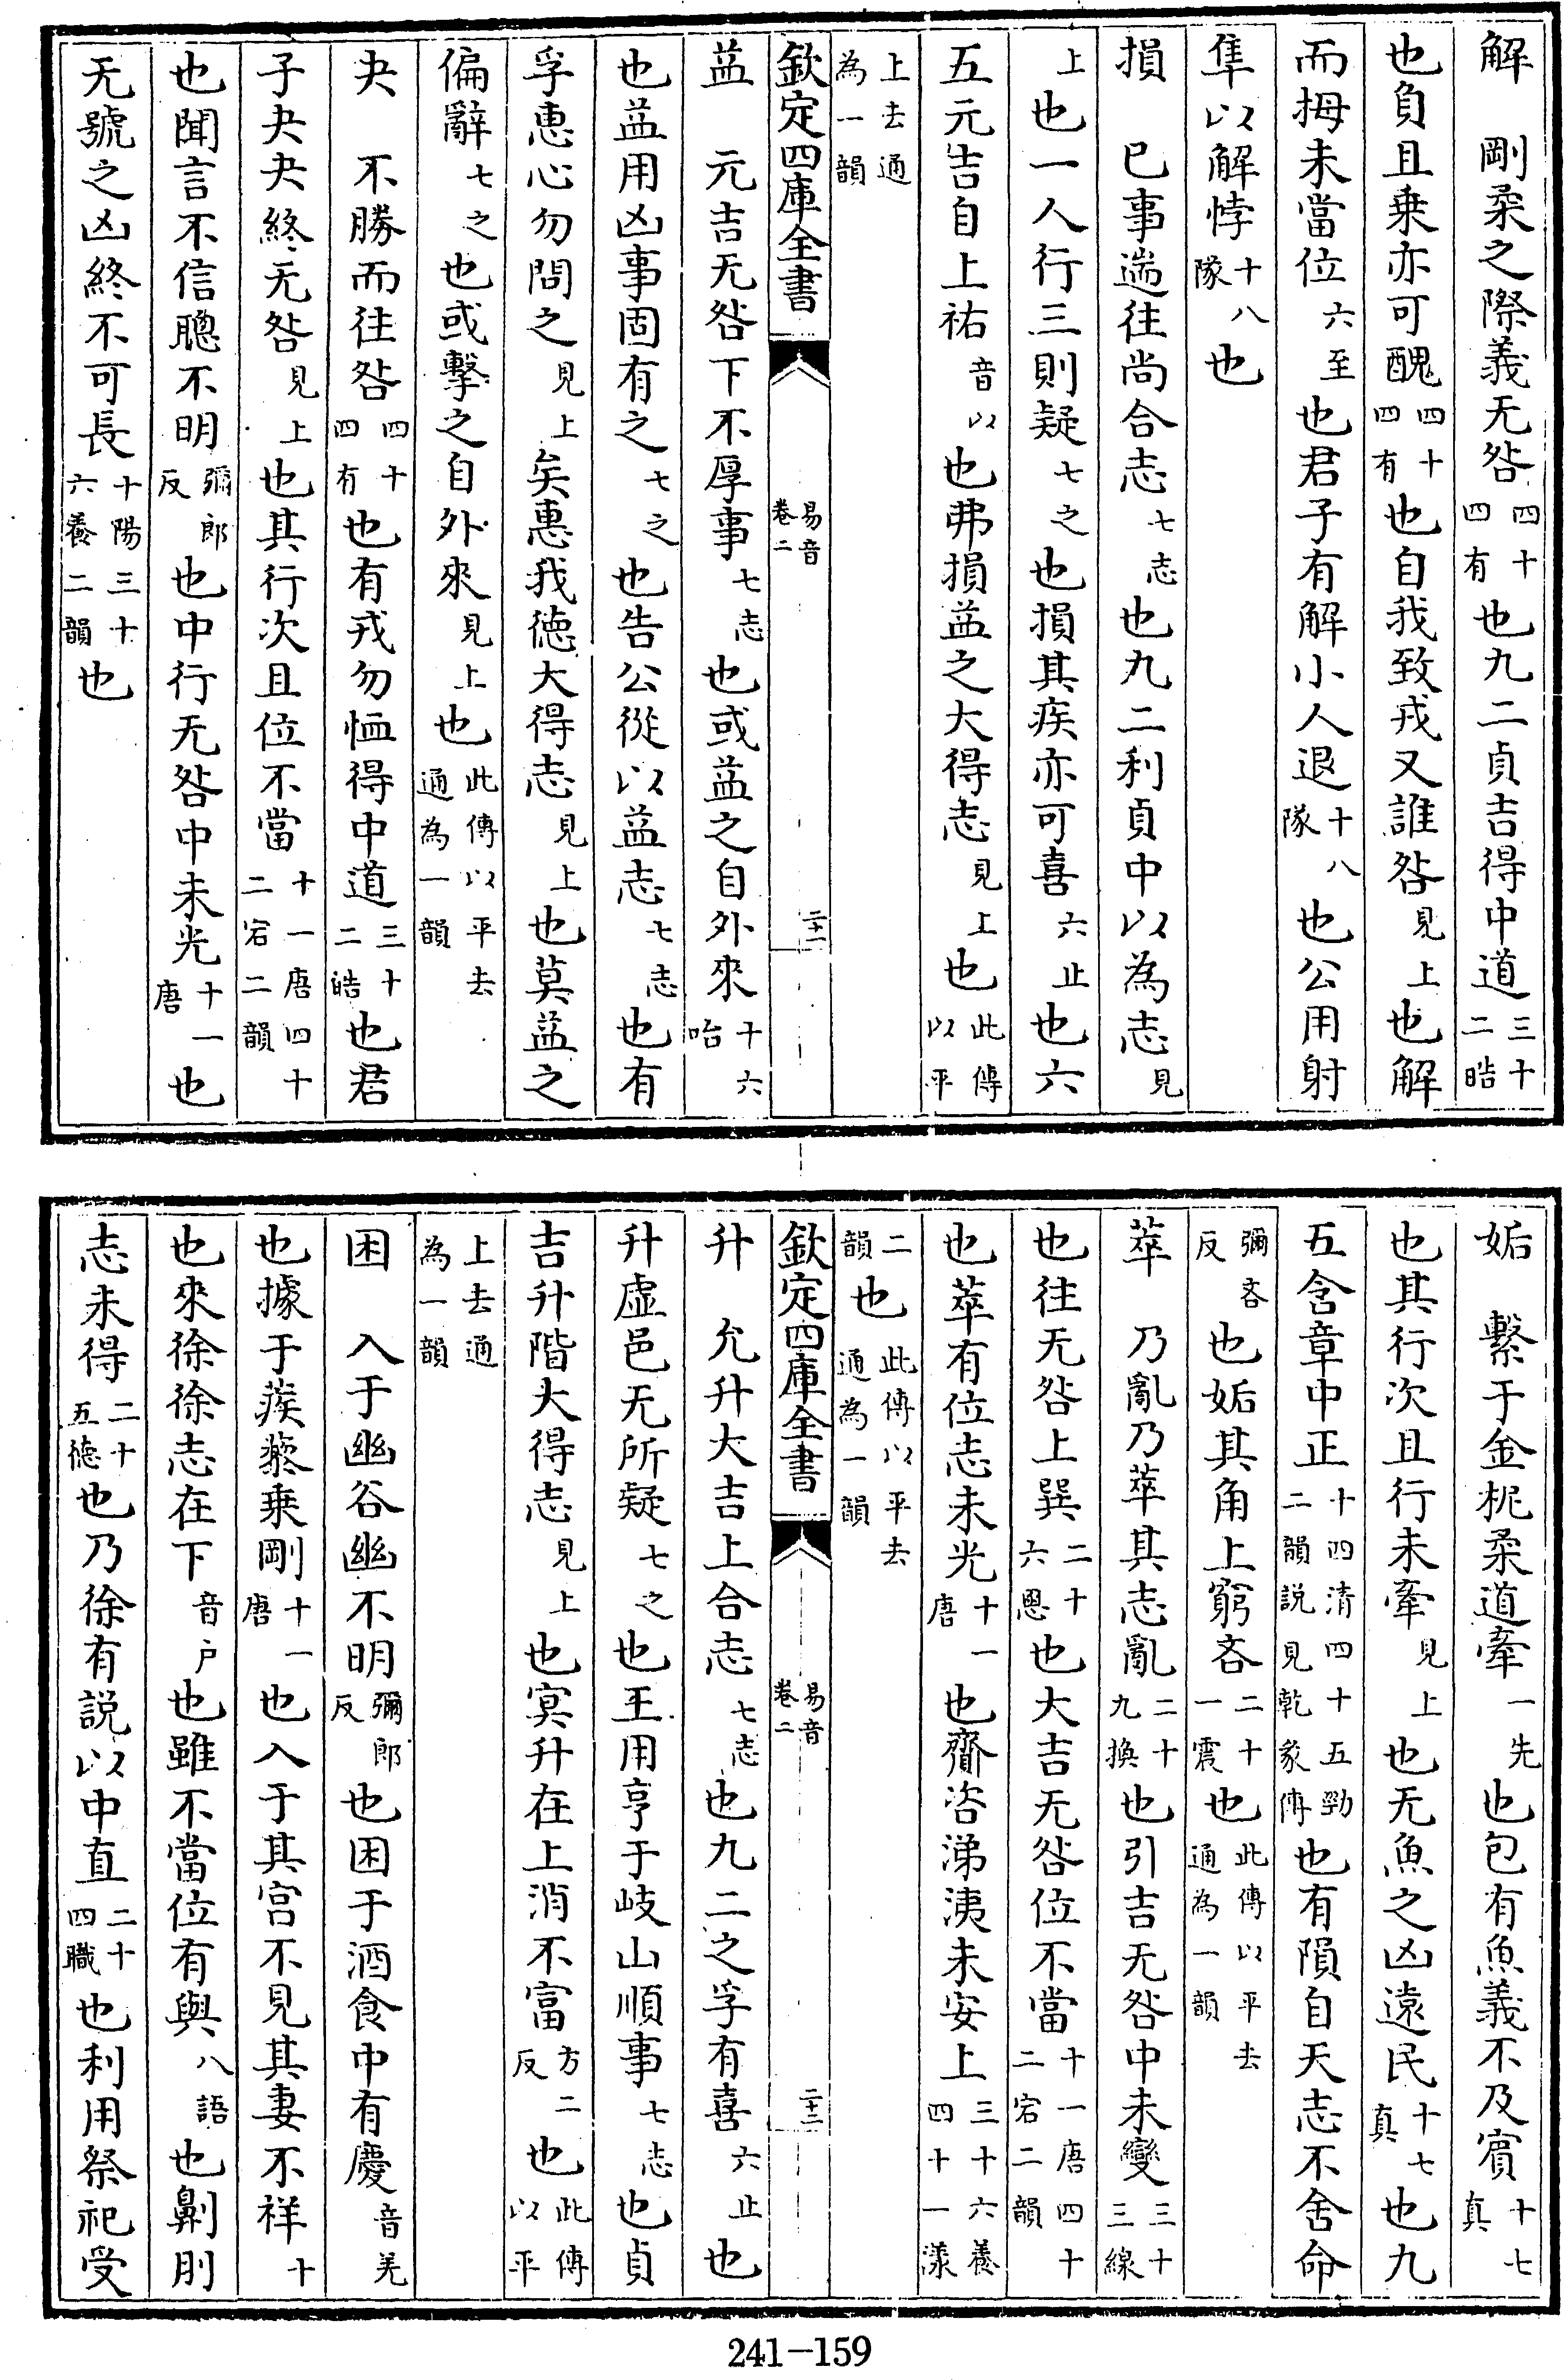 解　剛柔之際義无咎四十四有也九二貞吉得中道三十二晧
也負且乗亦可醜四十四有也自我致戎又誰咎見上也解
而拇未當位六至也君子有解小人退十八隊也公用射
隼以解悖十八隊也
損　已事遄往尚合志七志也九二利貞中以為志見
上也一人行三則疑七之也損其疾亦可喜六止也六
五元吉自上祐音以也弗損益之大得志見上也此傳以平
上去通為一韻
欽定四庫全書　易音卷二　二十一
益　元吉无咎下不厚事七志也或益之自外來十六咍
也益用凶事固有之七之也告公從以益志七志也有
孚惠心勿問之見上矣惠我徳大得志見上也莫益之
偏辭七之也或擊之自外來見上也此傳以平去通為一韻
夬　不勝而往咎四十四有也有戎勿恤得中道三十二皓也君
子夬夬終无咎見上也其行次且位不當十一唐四十二宕二韻
也聞言不信聰不明彌郎反也中行无咎中未光十一唐也
无號之凶終不可長十陽三十六養二韻也
姤　繫于金柅柔道牽一先也包有魚義不及賓十七真
也其行次且行未牽見上也无魚之凶遠民十七真也九
五含章中正十四清四十五勁二韻説見乾彖傳也有隕自天志不舍命
彌吝反也姤其角上窮吝二十一震也此傳以平去通為一韻
萃　乃亂乃萃其志亂二十九換也引吉无咎中未變三十三線
也往无咎上巽二十六慁也大吉无咎位不當十一唐四十二宕二韻
也萃有位志未光十一唐也齎咨涕洟未安上三十六養四十一漾
二韻也此傳以平去通為一韻
欽定四庫全書　易音卷二　二十二
升　允升大吉上合志七志也九二之孚有喜六止也
升虛邑无所疑七之也王用亨于岐山順事七志也貞
吉升階大得志見上也冥升在上消不富方二反也此傳以平
上去通為一韻
困　入于幽谷幽不明彌郎反也困于酒食中有慶音羌
也據于蒺藜乗剛十一唐也入于其宫不見其妻不祥十
也來徐徐志在下音户也雖不當位有與八語也劓刖
志未得二十五徳也乃徐有説以中直二十四職也利用祭祀受
241-159